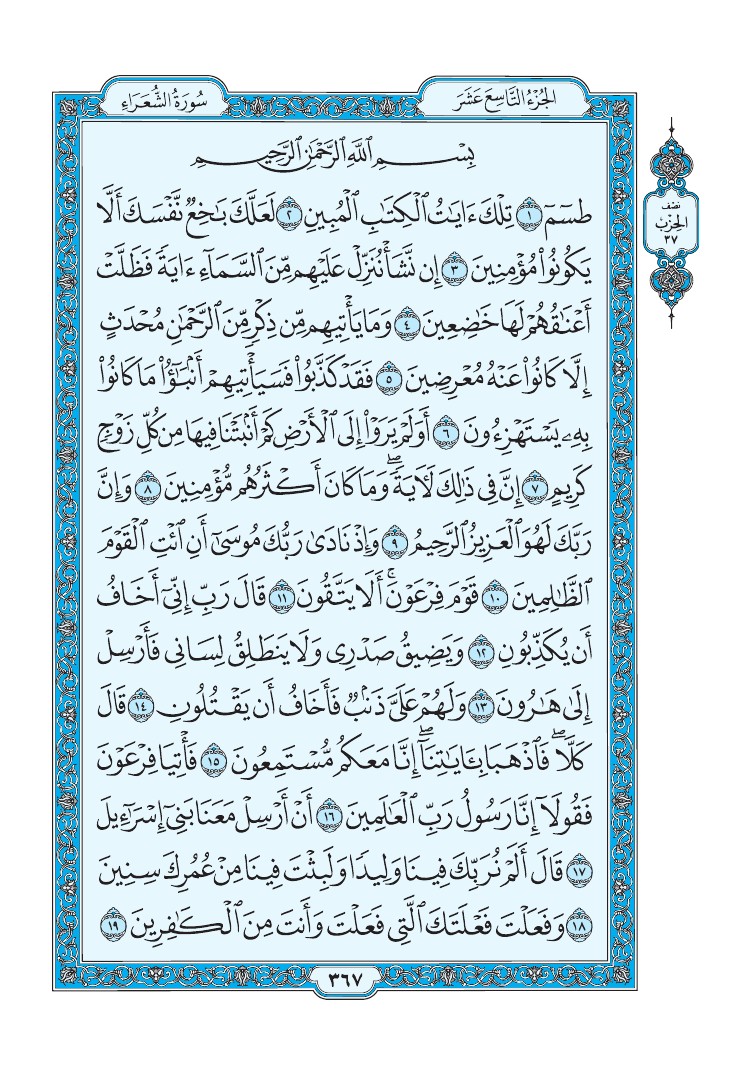 سُورَةُ الشُّعَرَاءِ
الجُزْءُ التَّاسِعَ عَشَرَ
نصف
الحِزْب
٣٧
بِسْمِ اللَّهِ الرَّحْمَٰنِ الرَّحِيمِ
طسٓمٓ ١ تِلْكَ ءَايَٰتُ ٱلْكِتَٰبِ ٱلْمُبِينِ ٢ لَعَلَّكَ بَٰخِعٌ نَّفْسَكَ أَلَّا
يَكُونُوا۟ مُؤْمِنِينَ ٣ إِن نَّشَأْ نُنَزِّلْ عَلَيْهِم مِّنَ ٱلسَّمَآءِ ءَايَةً فَظَلَّتْ
أَعْنَٰقُهُمْ لَهَا خَٰضِعِينَ ٤ وَمَا يَأْتِيهِم مِّن ذِكْرٍ مِّنَ ٱلرَّحْمَٰنِ مُحْدَثٍ
إِلَّا كَانُوا۟ عَنْهُ مُعْرِضِينَ ٥ فَقَدْ كَذَّبُوا۟ فَسَيَأْتِيهِمْ أَنۢبَٰٓؤُا۟ مَا كَانُوا۟
بِهِۦ يَسْتَهْزِءُونَ ٦ أَوَلَمْ يَرَوْا۟ إِلَى ٱلْأَرْضِ كَمْ أَنۢبَتْنَا فِيهَا مِن كُلِّ زَوْجٍ
كَرِيمٍ ٧ إِنَّ فِى ذَٰلِكَ لَءَايَةً ۖ وَمَا كَانَ أَكْثَرُهُم مُّؤْمِنِينَ ٨ وَإِنَّ
رَبَّكَ لَهُوَ ٱلْعَزِيزُ ٱلرَّحِيمُ ٩ وَإِذْ نَادَىٰ رَبُّكَ مُوسَىٰٓ أَنِ ٱئْتِ ٱلْقَوْمَ
ٱلظَّٰلِمِينَ ١٠ قَوْمَ فِرْعَوْنَ ۚ أَلَا يَتَّقُونَ ١١ قَالَ رَبِّ إِنِّىٓ أَخَافُ
أَن يُكَذِّبُونِ ١٢ وَيَضِيقُ صَدْرِى وَلَا يَنطَلِقُ لِسَانِى فَأَرْسِلْ
إِلَىٰ هَٰرُونَ ١٣ وَلَهُمْ عَلَىَّ ذَنۢبٌ فَأَخَافُ أَن يَقْتُلُونِ ١٤ قَالَ
كَلَّا ۖ فَٱذْهَبَا بِـَٔايَٰتِنَآ ۖ إِنَّا مَعَكُم مُّسْتَمِعُونَ ١٥ فَأْتِيَا فِرْعَوْنَ
فَقُولَآ إِنَّا رَسُولُ رَبِّ ٱلْعَٰلَمِينَ ١٦ أَنْ أَرْسِلْ مَعَنَا بَنِىٓ إِسْرَٰٓءِيلَ
١٧ قَالَ أَلَمْ نُرَبِّكَ فِينَا وَلِيدًا وَلَبِثْتَ فِينَا مِنْ عُمُرِكَ سِنِينَ
١٨ وَفَعَلْتَ فَعْلَتَكَ ٱلَّتِى فَعَلْتَ وَأَنتَ مِنَ ٱلْكَٰفِرِينَ ١٩
٣٦٧